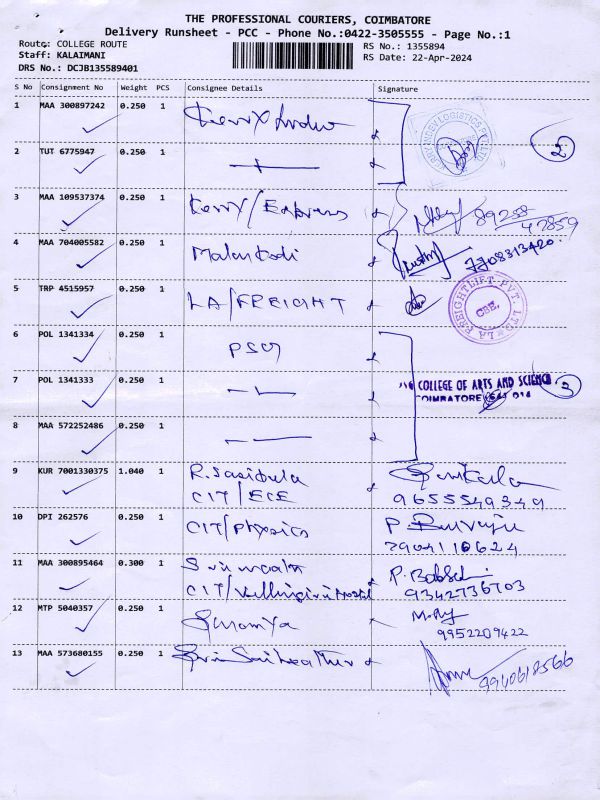 THE PROFESSIONAL COURIERS, COIMBATORE
Delivery Runsheet - PCC - Phone No.:0422-3505555 - Page No.:1
Route: COLLEGE ROUTE
RS No.: 1355894
Staff: KALAIMANI
RS Date: 22-Apr-2024
DRS No.: DCJB135589401
S No Consignment No Weight PCS Consignee Details Signature
1 MAA 300897242 0.250 1
2
2 TUT 6775947 0.250 1
3 MAA 109537374 0.250 1 Kerry/Express 89258
42859
4 MAA 704005582 0.250 1
5 TRP 4515957 0.250 1 LA/FREIGHT
LA FREIGHTLIFT PVT. LTD. CBE.
6 POL 1341334 0.250 1 PSG
7 POL 1341333 0.250 1 — 1 —
COLLEGE OF ARTS AND SCIENCE
COIMBATORE 641 014
3
8 MAA 572252486 0.250 1
9 KUR 7001330375 1.040 1 R. Sasibula
CIT/ECE 9655549349
10 DPI 262576 0.250 1 CIT/Physics
11 MAA 300895464 0.300 1
CIT/ 9342736703
12 MTP 5040357 0.250 1 Sowmya
9952209422
13 MAA 573680155 0.250 1 9940618566